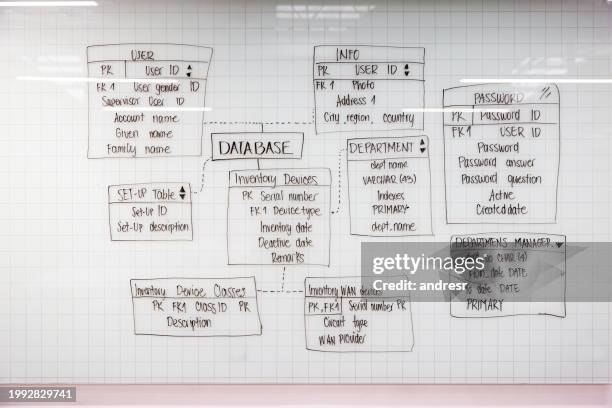 USER
PK User ID
FK 1 User gender ID
Supervisor User ID
Account name
Given name
Family name
INFO
PK USER ID
FK 1 Photo
Address 1
City, region, country
PASSWORD
PK Password ID
FK1 USER ID
Password
Password answer
Password question
Active
Created date
DATABASE
DEPARTMENT
dept name
VARCHAR (43)
Indexes
PRIMARY
dept_name
SET-UP Table
Set-Up ID
Set-Up description
Inventory Devices
PK Serial number
FK1 Device type
Inventory date
Deactive date
Remarks
DEPARTMENS MANAGER
CHAR (4)
date DATE
date DATE
PRIMARY
Inventory Device Classes
PK FK1 Class ID PK
Description
Inventory WAN devices
PK, FK1 Serial number PK
Circuit type
WAN Provider
gettyimages
Credit: andresr
1392829741